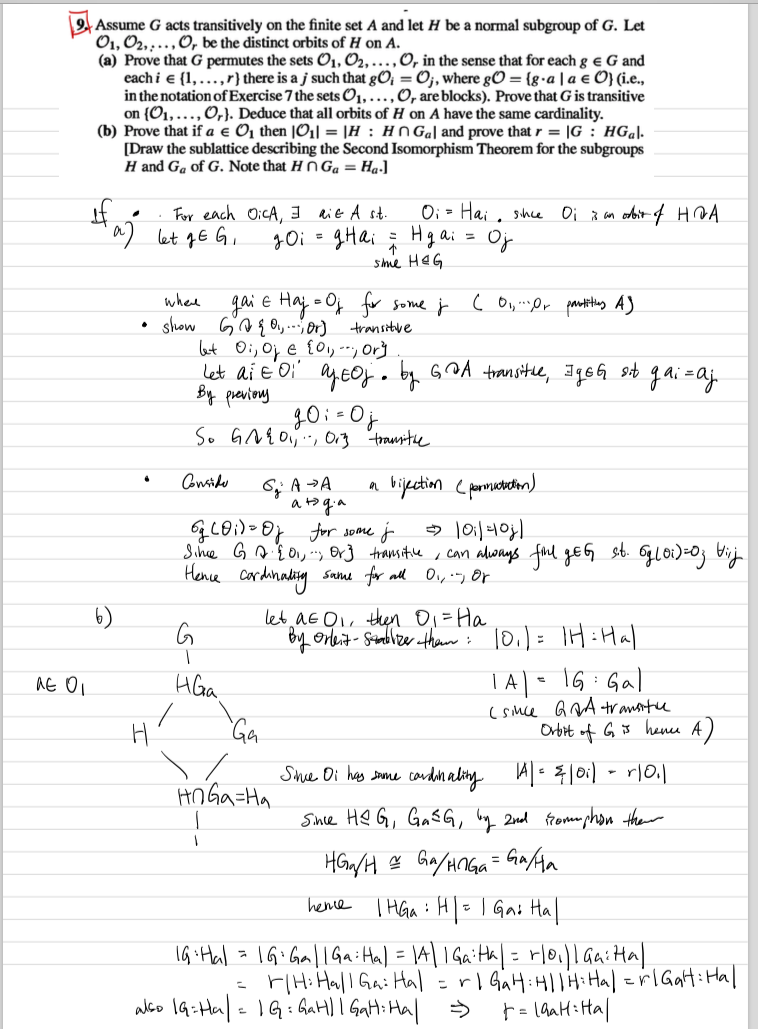 9. Assume G acts transitively on the finite set A and let H be a normal subgroup of G. Let
O₁, O₂, . . . , Oᵣ be the distinct orbits of H on A.
(a) Prove that G permutes the sets O₁, O₂, . . . , Oᵣ in the sense that for each g ∈ G and
each i ∈ {1, . . . , r} there is a j such that gOᵢ = Oⱼ, where gO = {g·a | a ∈ O} (i.e.,
in the notation of Exercise 7 the sets O₁, . . . , Oᵣ are blocks). Prove that G is transitive
on {O₁, . . . , Oᵣ}. Deduce that all orbits of H on A have the same cardinality.
(b) Prove that if a ∈ O₁ then |O₁| = |H : H ∩ Gₐ| and prove that r = |G : HGₐ|.
[Draw the sublattice describing the Second Isomorphism Theorem for the subgroups
H and Gₐ of G. Note that H ∩ Gₐ = Hₐ.]
If • . For each Oi⊂A, ∃ ai∈A st. Oi = Hai, since Oi is an orbit of H↷A
a) let g∈G, gOi = gHai = Hgai = Oj
↑
since H⊴G
where gai ∈ Haj = Oj for some j ( O₁, ..., Or partitions A)
• show G↷{O₁, ..., Or} transitive
let Oi, Oj ∈ {O₁, ..., Or}.
Let ai∈Oi aj∈Oj. by G↷A transitive, ∃g∈G s.t g ai = aj
By previous
gOi = Oj
So G↷{O₁, ..., Or} transitive
• Consider σg: A→A a bijection (permutation)
a↦g·a
σg(Oi)=Oj for some j ⇒ |Oi|=|Oj|
Since G↷{O₁, ..., Or} transitive, can always find g∈G st. σg(Oi)=Oj ∀i,j
Hence cardinality same for all O₁, ..., Or
b) let a∈O₁, then O₁=Ha
By orbit-stabilizer them: |O₁| = |H:Ha|
a∈O₁
G
HGa
H Ga
H∩Ga=Ha
|A| = |G:Ga|
(since G↷A transitive
Orbit of G is hence A)
Since Oi has same cardinality |A| = Σ|Oi| = r|O₁|
Since H⊴G, Ga≤G, by 2nd isomorphism them
HGa/H ≅ Ga/H∩Ga = Ga/Ha
hence |HGa : H| = |Ga: Ha|
|G:Ha| = |G:Ga||Ga:Ha| = |A||Ga:Ha| = r|O₁||Ga:Ha|
= r|H:Ha||Ga:Ha| = r|GaH:H||H:Ha| = r|GaH:Ha|
also |G:Ha| = |G:GaH||GaH:Ha| ⇒ r = |GaH:Ha|